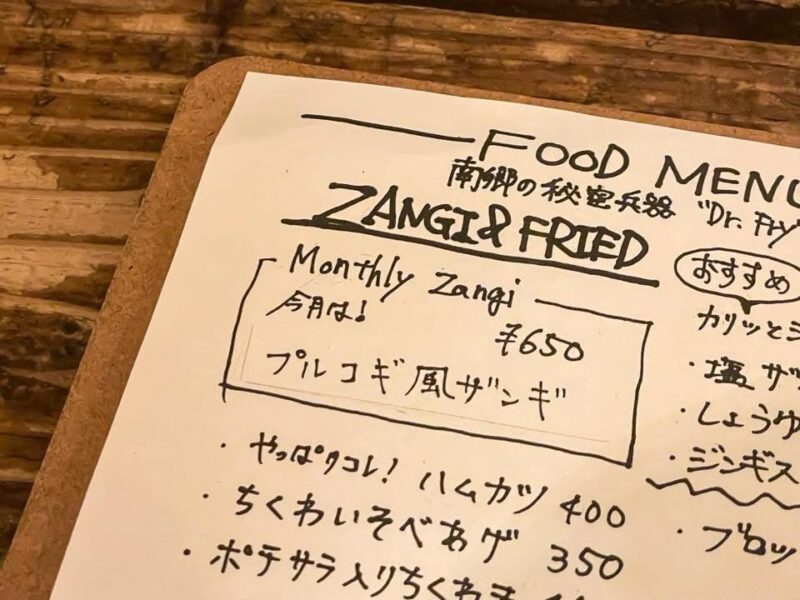 FOOD MENU
南郷の秘密兵器 "Dr. Fry"
ZANGI & FRIED
Monthly Zangi
今月は!
¥650
プルコギ風ザンギ
・やっぱりコレ! ハムカツ 400
・ちくわいそべあげ 350
・ポテサラ入りちくわ
おすすめ
カリッとジ
・塩ザ
・しょうゆ
・ジンギス
・ブロッ